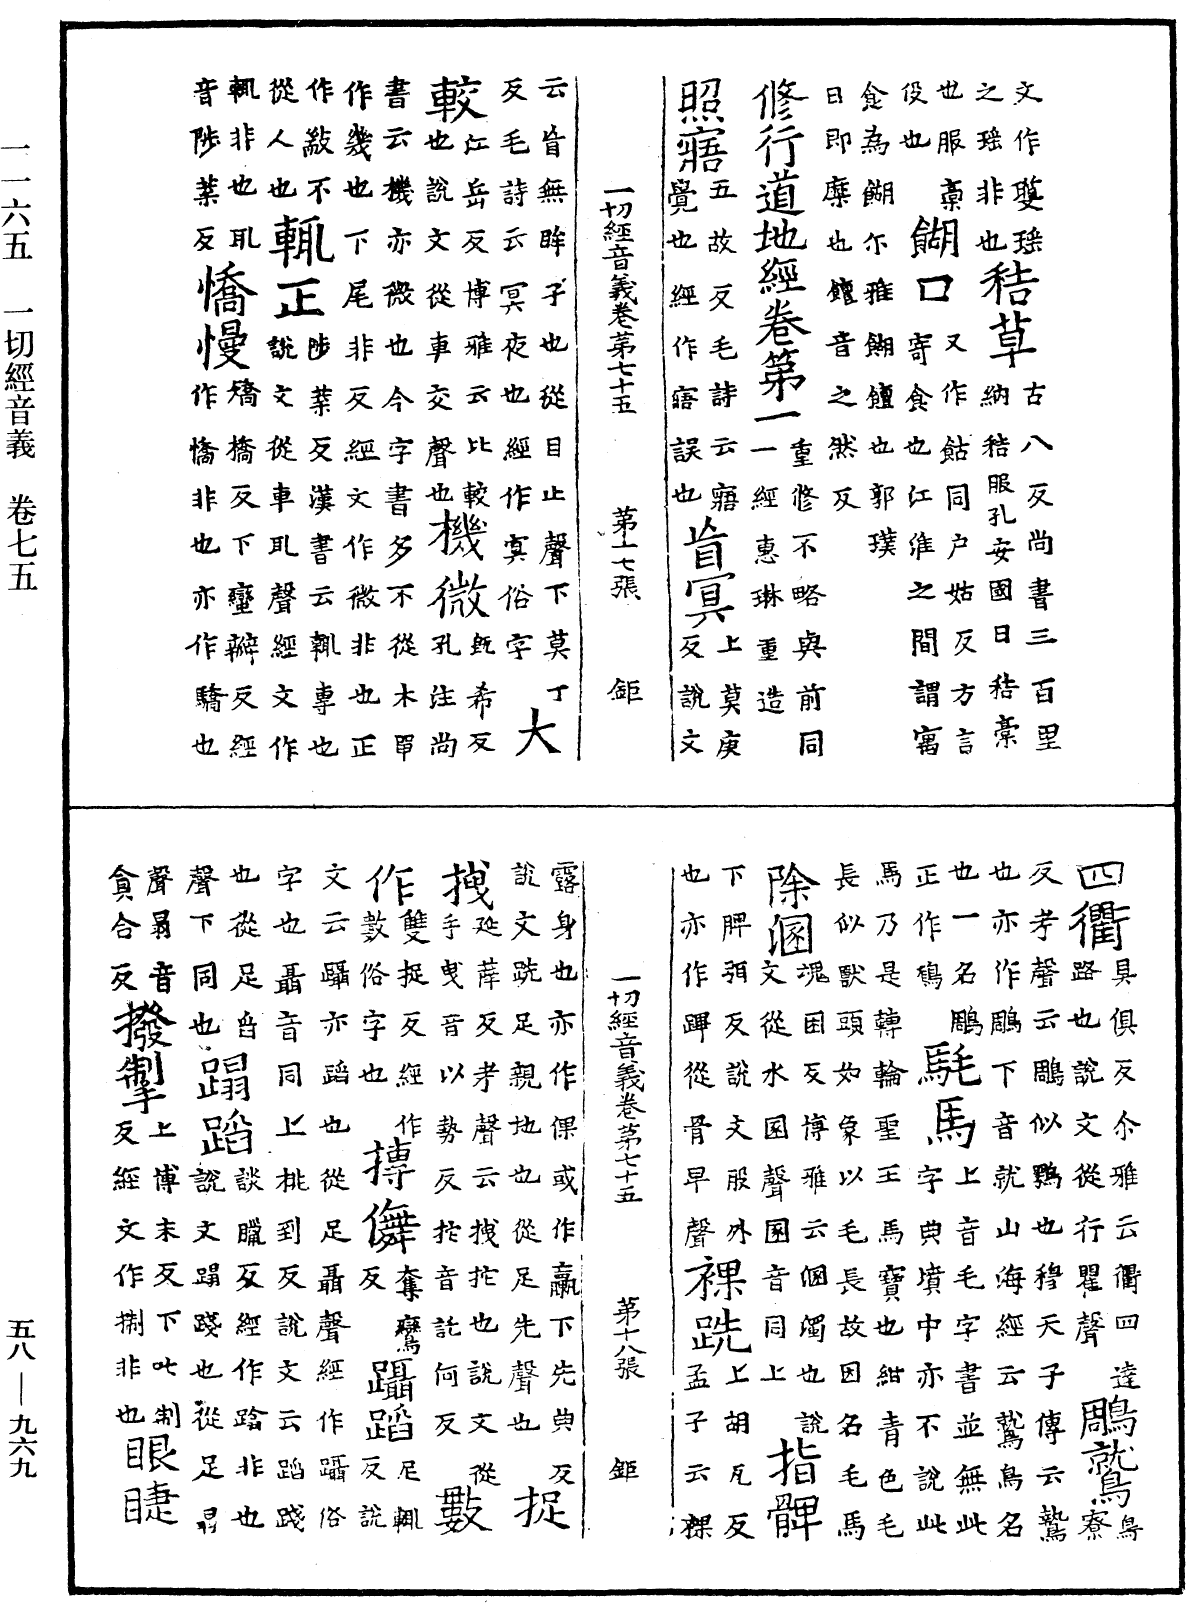 一一六五　一切經音義　卷七五
文作䕫瑶　　　古八反尚書三百里
之瑶非也秸草納秸服孔安國曰秸槀
也服槀　　　又作䬶同户姑反方言
役也　餬口寄食也江淮之間謂寓
食為餬尒雅餬饘也郭璞
曰即糜也饘音之然反
修行道地經卷第一重修不略與前同
一經惠琳重造
照寤五故反毛詩云寤
覺也經作寤誤也盲冥上莫庚
反說文
一切經音義卷第七十五　第十七張　鉅
云盲無眸子也從目亡聲下莫丁
反毛詩云冥夜也經作寘俗字大
較江岳反博雅云比較
也說文從車交聲也機微既希反
孔注尚
書云機亦微也今字書多不從木單
作幾也下尾非反經文作微非也正
作㪔不　　陟葉反漢書云輒專也
從人也輒正說文從車耴聲經文作
輙非也耴
音陟葉反憍慢矯橋反下蠻辦反經
作憍非也亦作驕也
四衢具俱反尒雅云衢四達
路也說文從行瞿聲鵰鷲鳥寮
反考聲云鵰似鶚也穆天子傳云鷲
也亦作鵰下音就山海經云鷲鳥名
也一名鵰　　上音毛字書並無此
正作鵰　髦馬字典墳中亦不說此
馬乃是轉輪聖王馬寶也紺青色毛
長似獸頭如象以毛長故因名毛馬
除溷魂困反博雅云溷濁也說
文從水圂聲圂音同上指髀
下脾弭反說文股外
也亦作䠋從骨卑聲裸跣上胡瓦反
孟子云裸
一切經音義卷第七十五　第十八張　鉅
露身也亦作倮或作臝下先典反
說文跣足親地也從足先聲也捉
拽延薛反考聲云拽拕也說文從
手曳音以勢反拕音託何反數
作雙捉反經作
數俗字也摶儛奪鸞
反　躡蹈尼輒
反說
文云躡亦蹈也從足聶聲經作躡俗
字也聶音同上桃到反說文云蹈踐
也從足舀　　談臘反經作蹹非也
聲下同也蹋蹈說文蹋踐也從足𦐇
聲𦐇音
貪合反撥掣上博末反下叱制
反經文作捌非也眼睫
五八—九六九